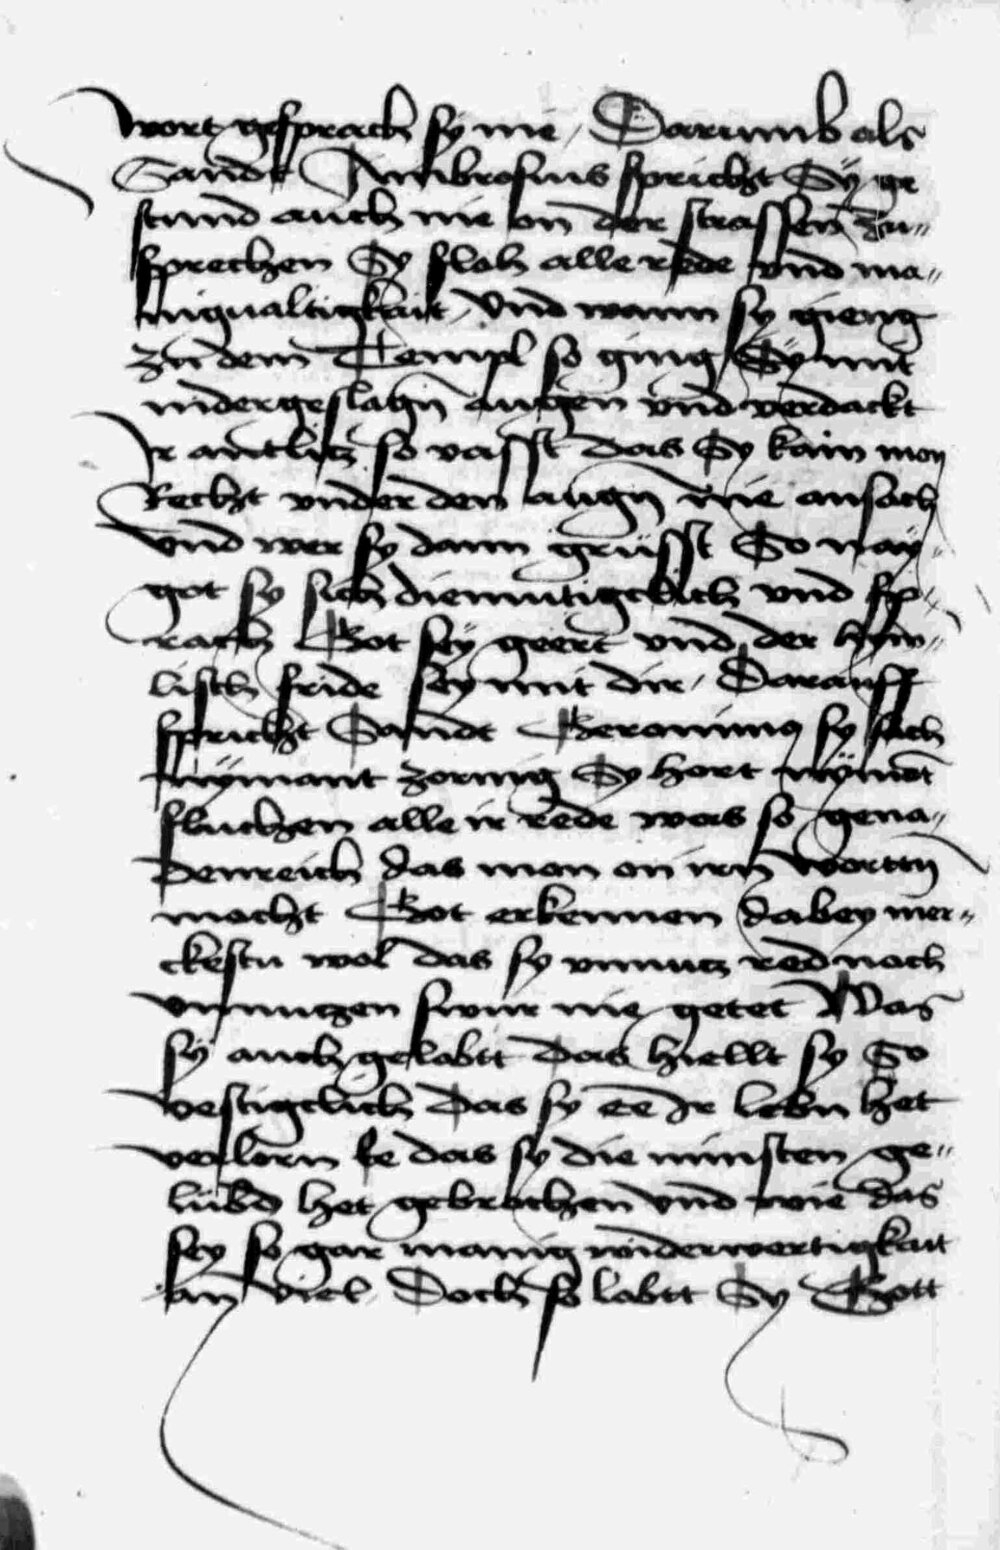 wort gesprach sy nie / Darumb als
Sandt Ambrosius spricht Sy ge
stund auch nie on der strassen zu„
sprechen Sy floh alle rede vnd ma„
nigualtigkait / Vnd wann sy gieng
zu dem Templ so ging Sy mit
nidergeslagn̄ augen vnd verdackt
Ir antlitz so vasst das Sy kain man
Recht vnder den augn̄ nie ansach
Vnd wer sy dann grüsst So naÿ„
got sy sich diemutigcklich vnd sp„
rach Got seÿ geert vnd der hym„
lisch fride seÿ mit dir / Darauff
spricht Sandt Geronimus sy sach
nÿmant zornig Sy hort nÿmāt
fluchen alle ir rede was so gena„
denreich das man an irn̄ wortn̄
macht Got erkennen dabey mer„
ckestu wol das sy vnnutz red noch
vnnutzen swür nie getet Was
sÿ auch gelabtt das hiellt sy So
vestigclich das sy ee Ir lebn het
verlorn Ee das sy die minsten ge„
lübd het gebrochen vnd wie das
sey so gar manig widerwertigkait
an viel / Doch so labtt Sy Gott